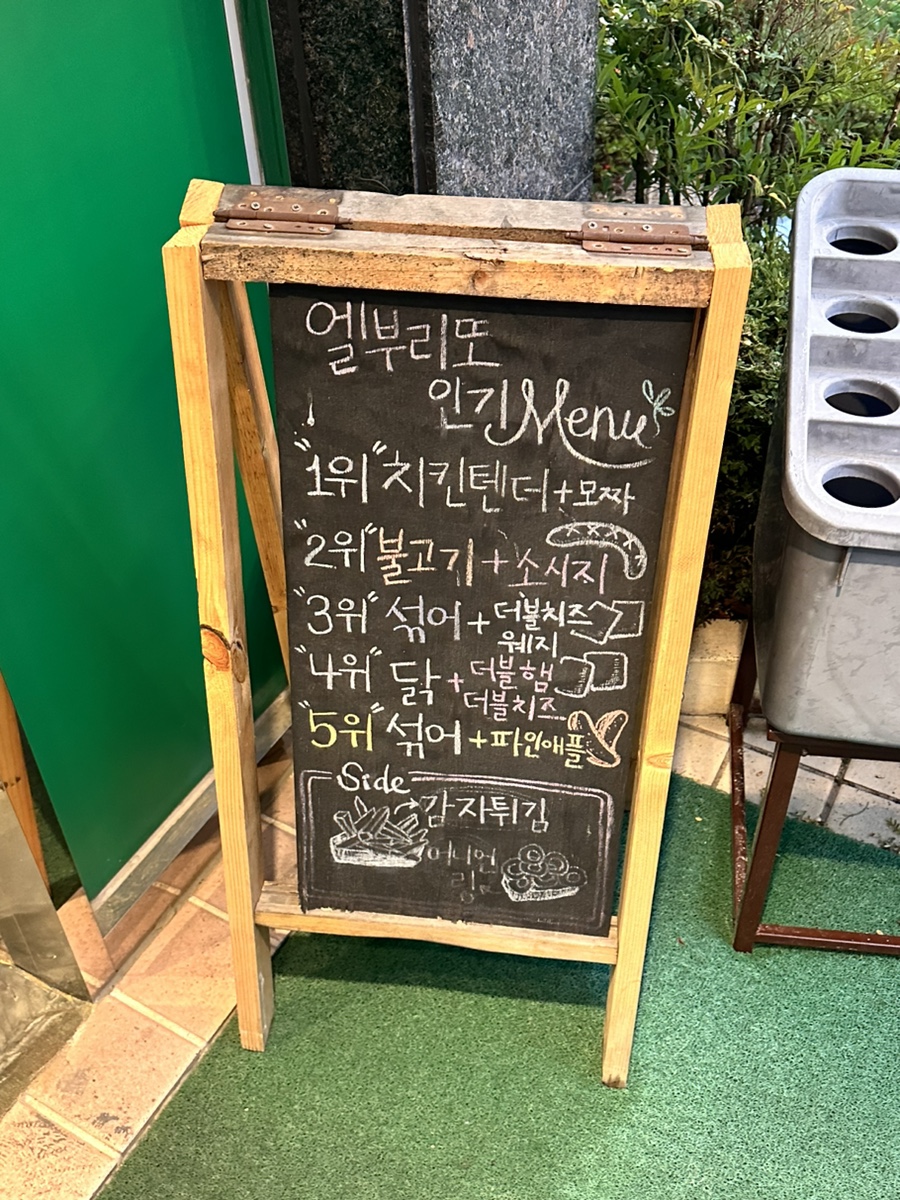 엘부리또
인기 Menu
"1위" 치킨텐더+모짜
"2위" 불고기+소시지
"3위" 섞어+더블치즈
웨지
"4위" 닭+더블햄
더블치즈
"5위" 섞어+파인애플
Side
감자튀김
어니언
링